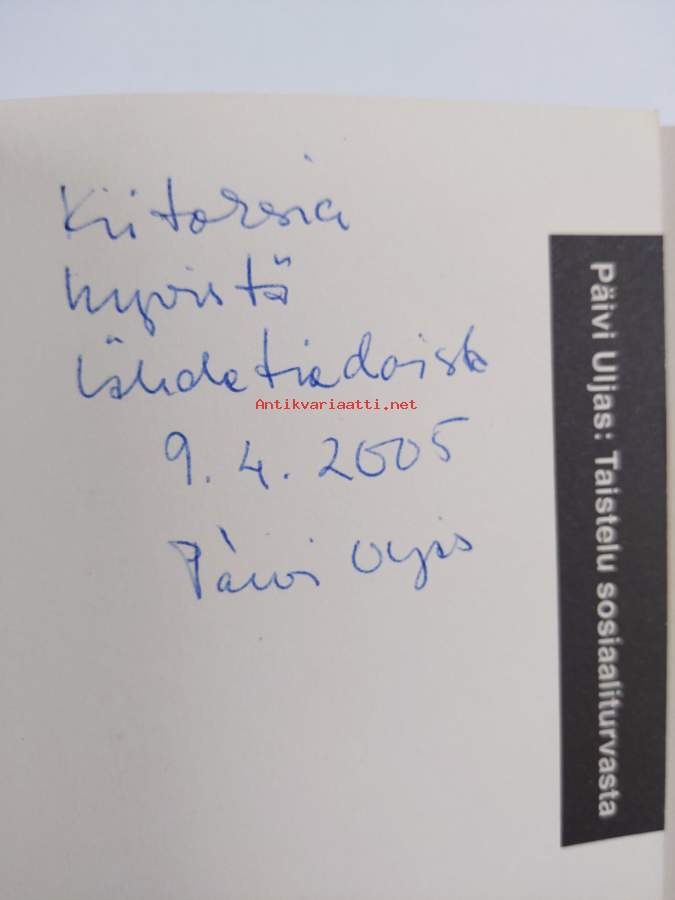 Kiitoksia
hyvistä
lähdetiedoista
Antikvariaatti.net
9.4.2005
Päivi Uljas
Päivi Uljas: Taistelu sosiaaliturvasta